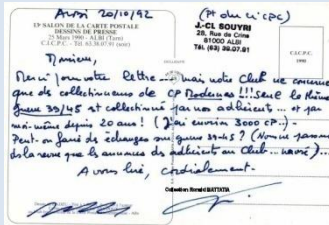 Aussi 20/10/92
(Pt du CICPC)
13e SALON DE LA CARTE POSTALE
DESSINS DE PRESSE
25 Mars 1990 - ALBI (Tarn)
C.I.C.P.C. - Tél. 63.38.07.91
J.-CL SOUYRI
28, Rue de Ciron
81000 ALBI
Tél. (63) 38.07.91
C.I.C.P.C.
1990
Monsieur,
Merci pour votre lettre... mais notre Club ne concerne
que des collectionneurs de CP Modernes !!! Seul le thème
guerre 39/45 est collectionné par nos adhérents... et par
moi-même depuis 20 ans ! (J'ai environ 3000 CP...) -
Peut-on faire des échanges sur guerre 39-45 ? (Nous ne passons
de la revue que les annonces des adhérents au Club... navré)...
A vous lire, cordialement -
Collection Ronald MATTATIA